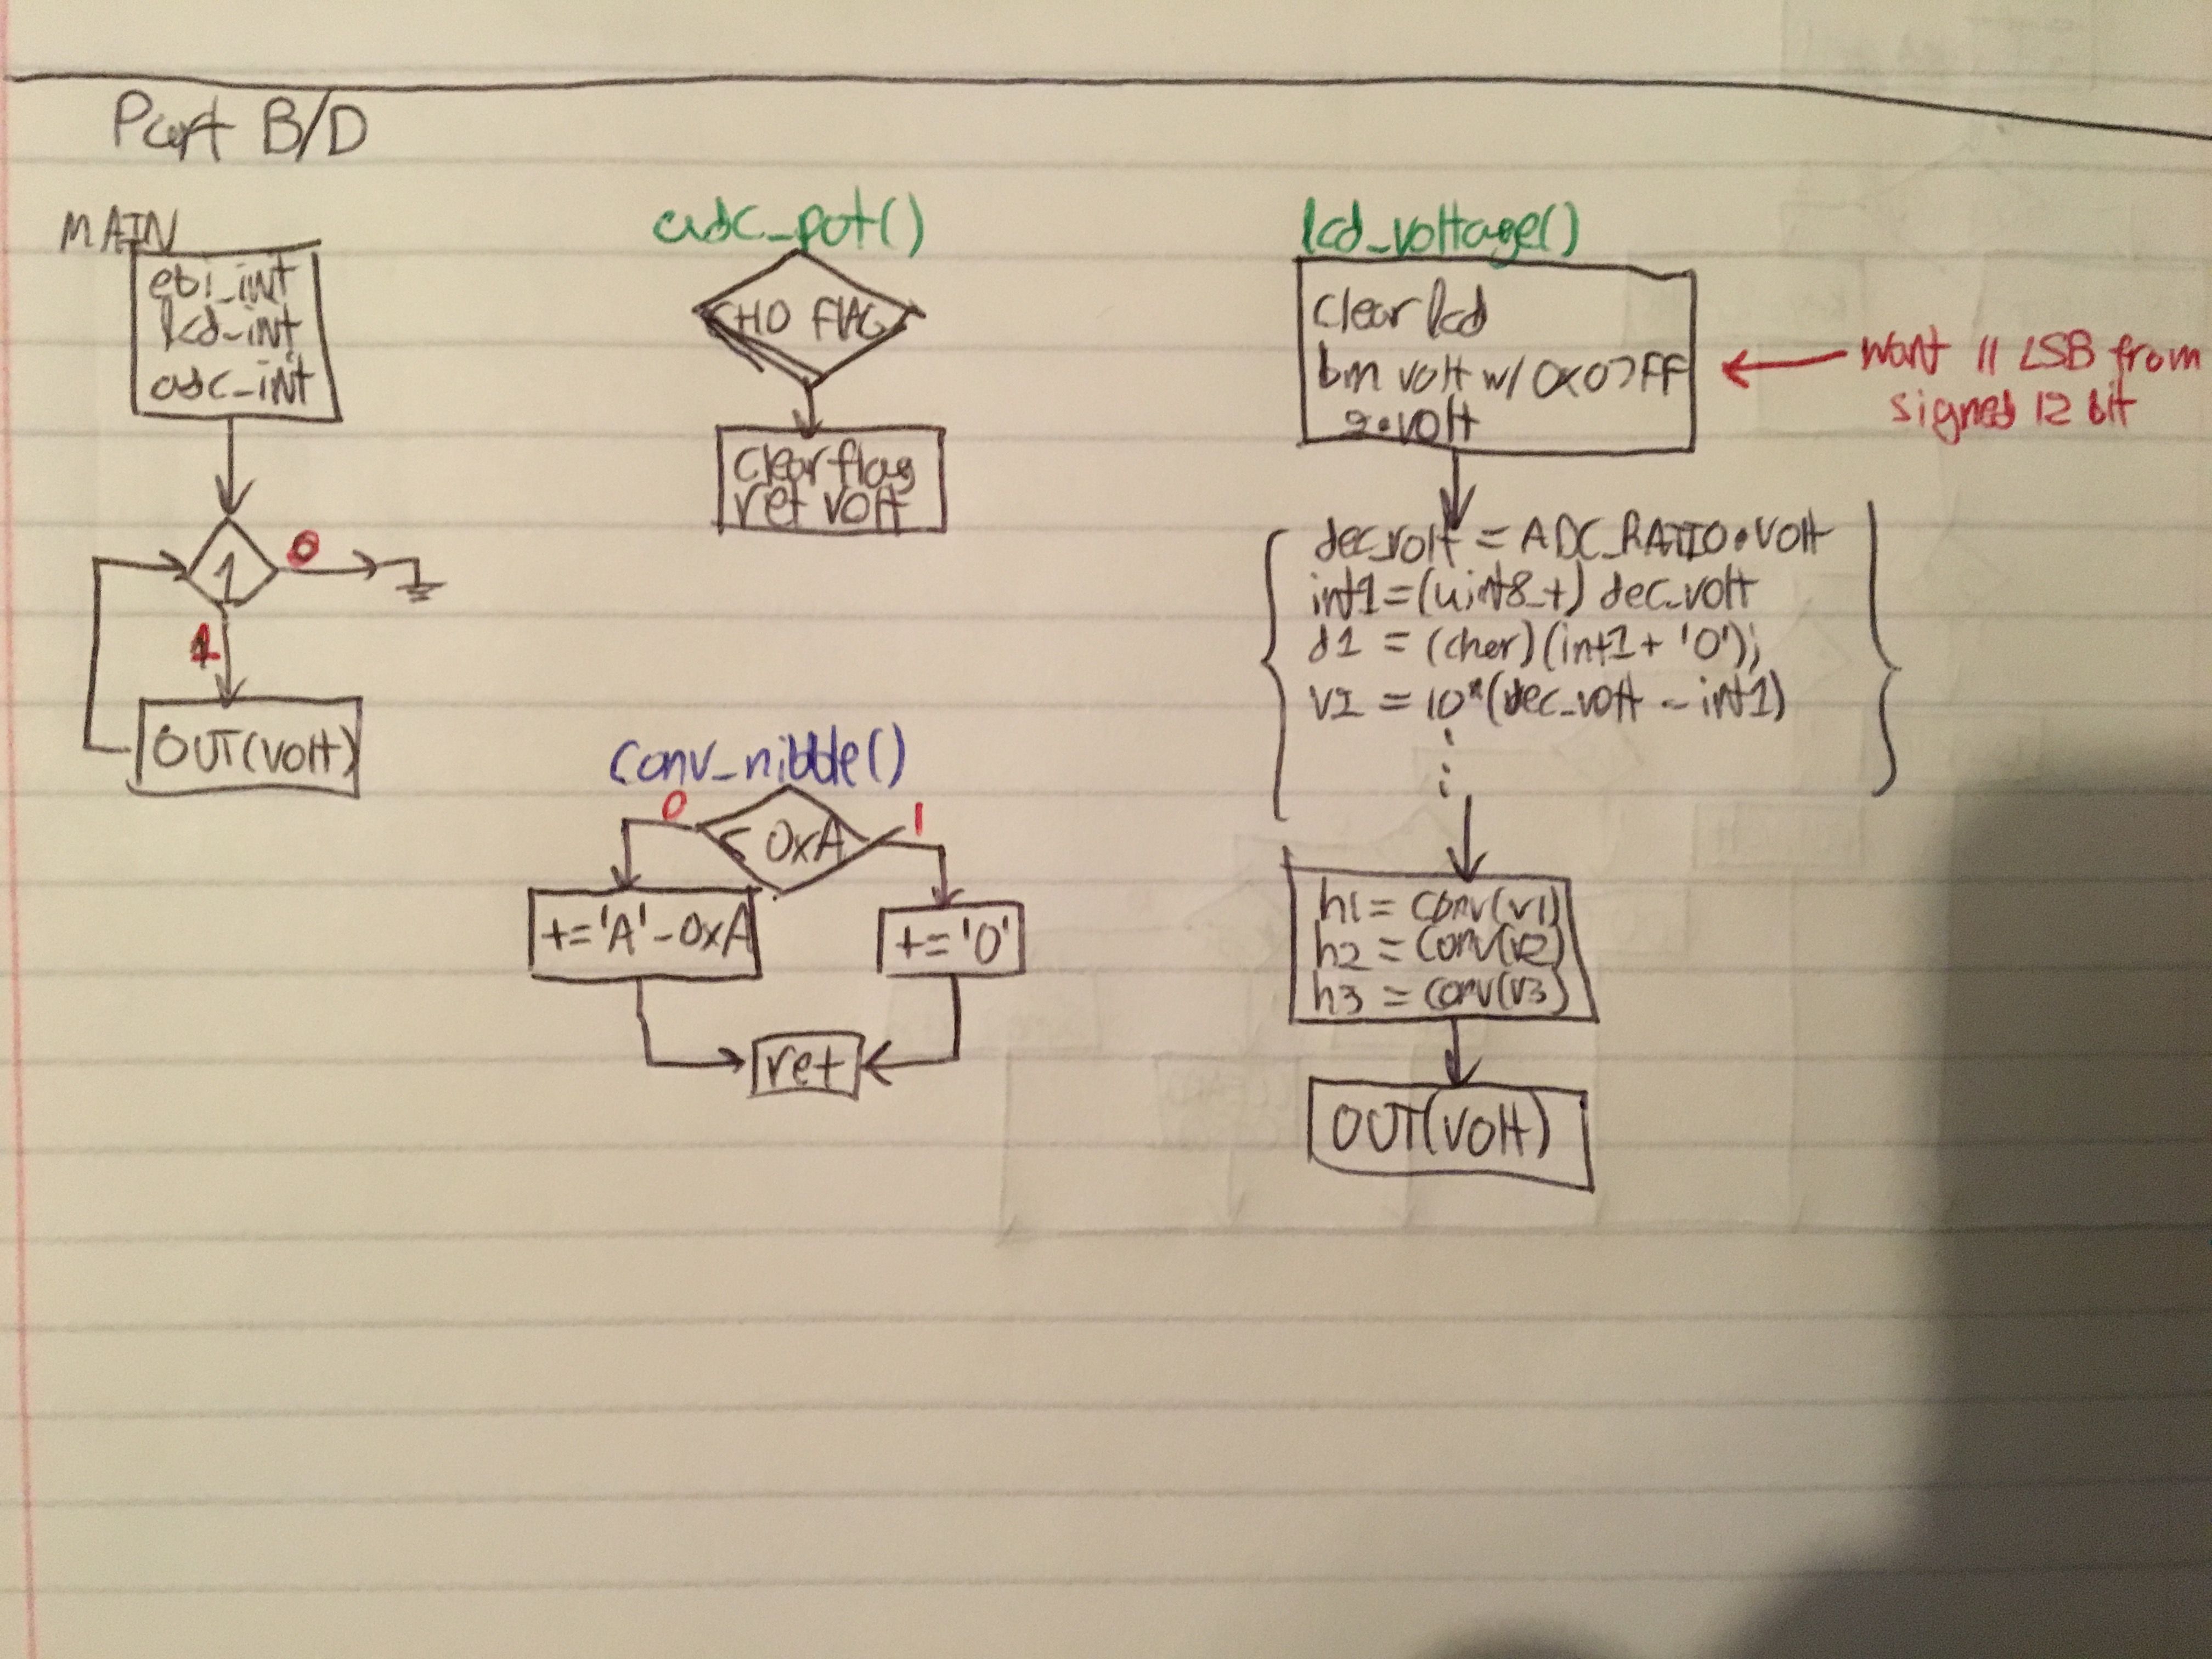 Part B/D
MAIN
ebi_int
lcd_int
adc_int
1
0
1
OUT(volt)
adc_pot()
CH0 FLAG
clear flag
ret volt
conv_nibble()
< 0xA
0
1
+='A'-0xA
+='0'
ret
lcd_voltage()
clear lcd
bm volt w/ 0x07FF
want 11 LSB from
signed 12 bit
dec_volt = ADC_RATIO • volt
int1 = (uint8_t) dec_volt
d1 = (char)(int1 + '0');
v1 = 10*(dec_volt - int1)
h1 = conv(v1)
h2 = conv(v2)
h3 = conv(v3)
OUT(volt)